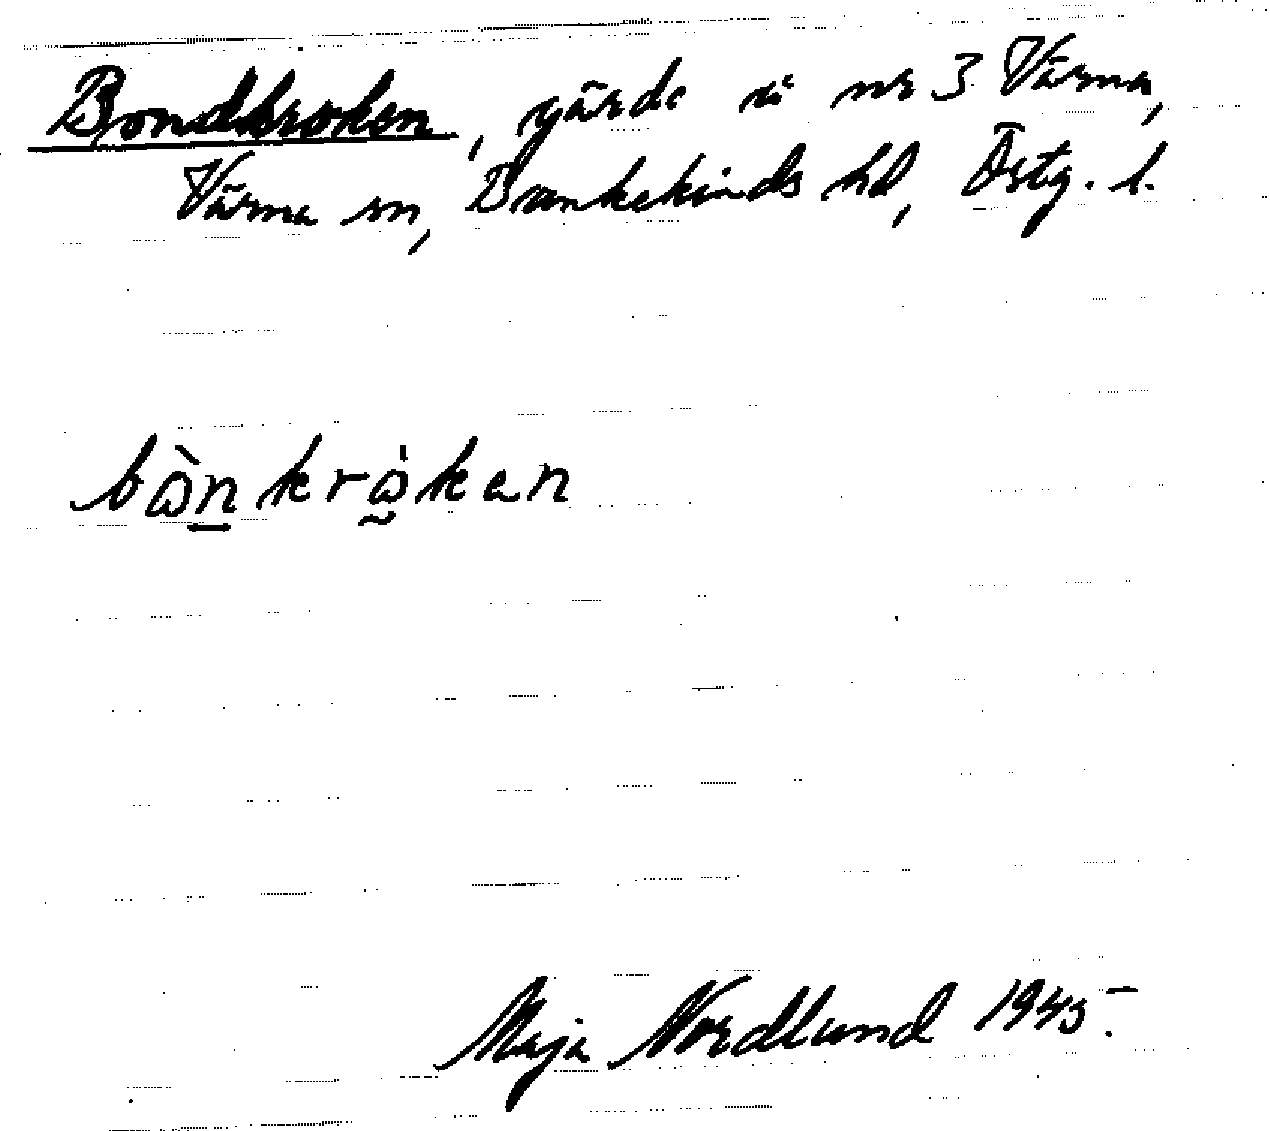 Bondkroken, gärde å nr 3 Värna,
Värna sn, Bankekinds hd, Östg. l.
bò̀n krȯ̀ken
Maja Nordlund 1945.